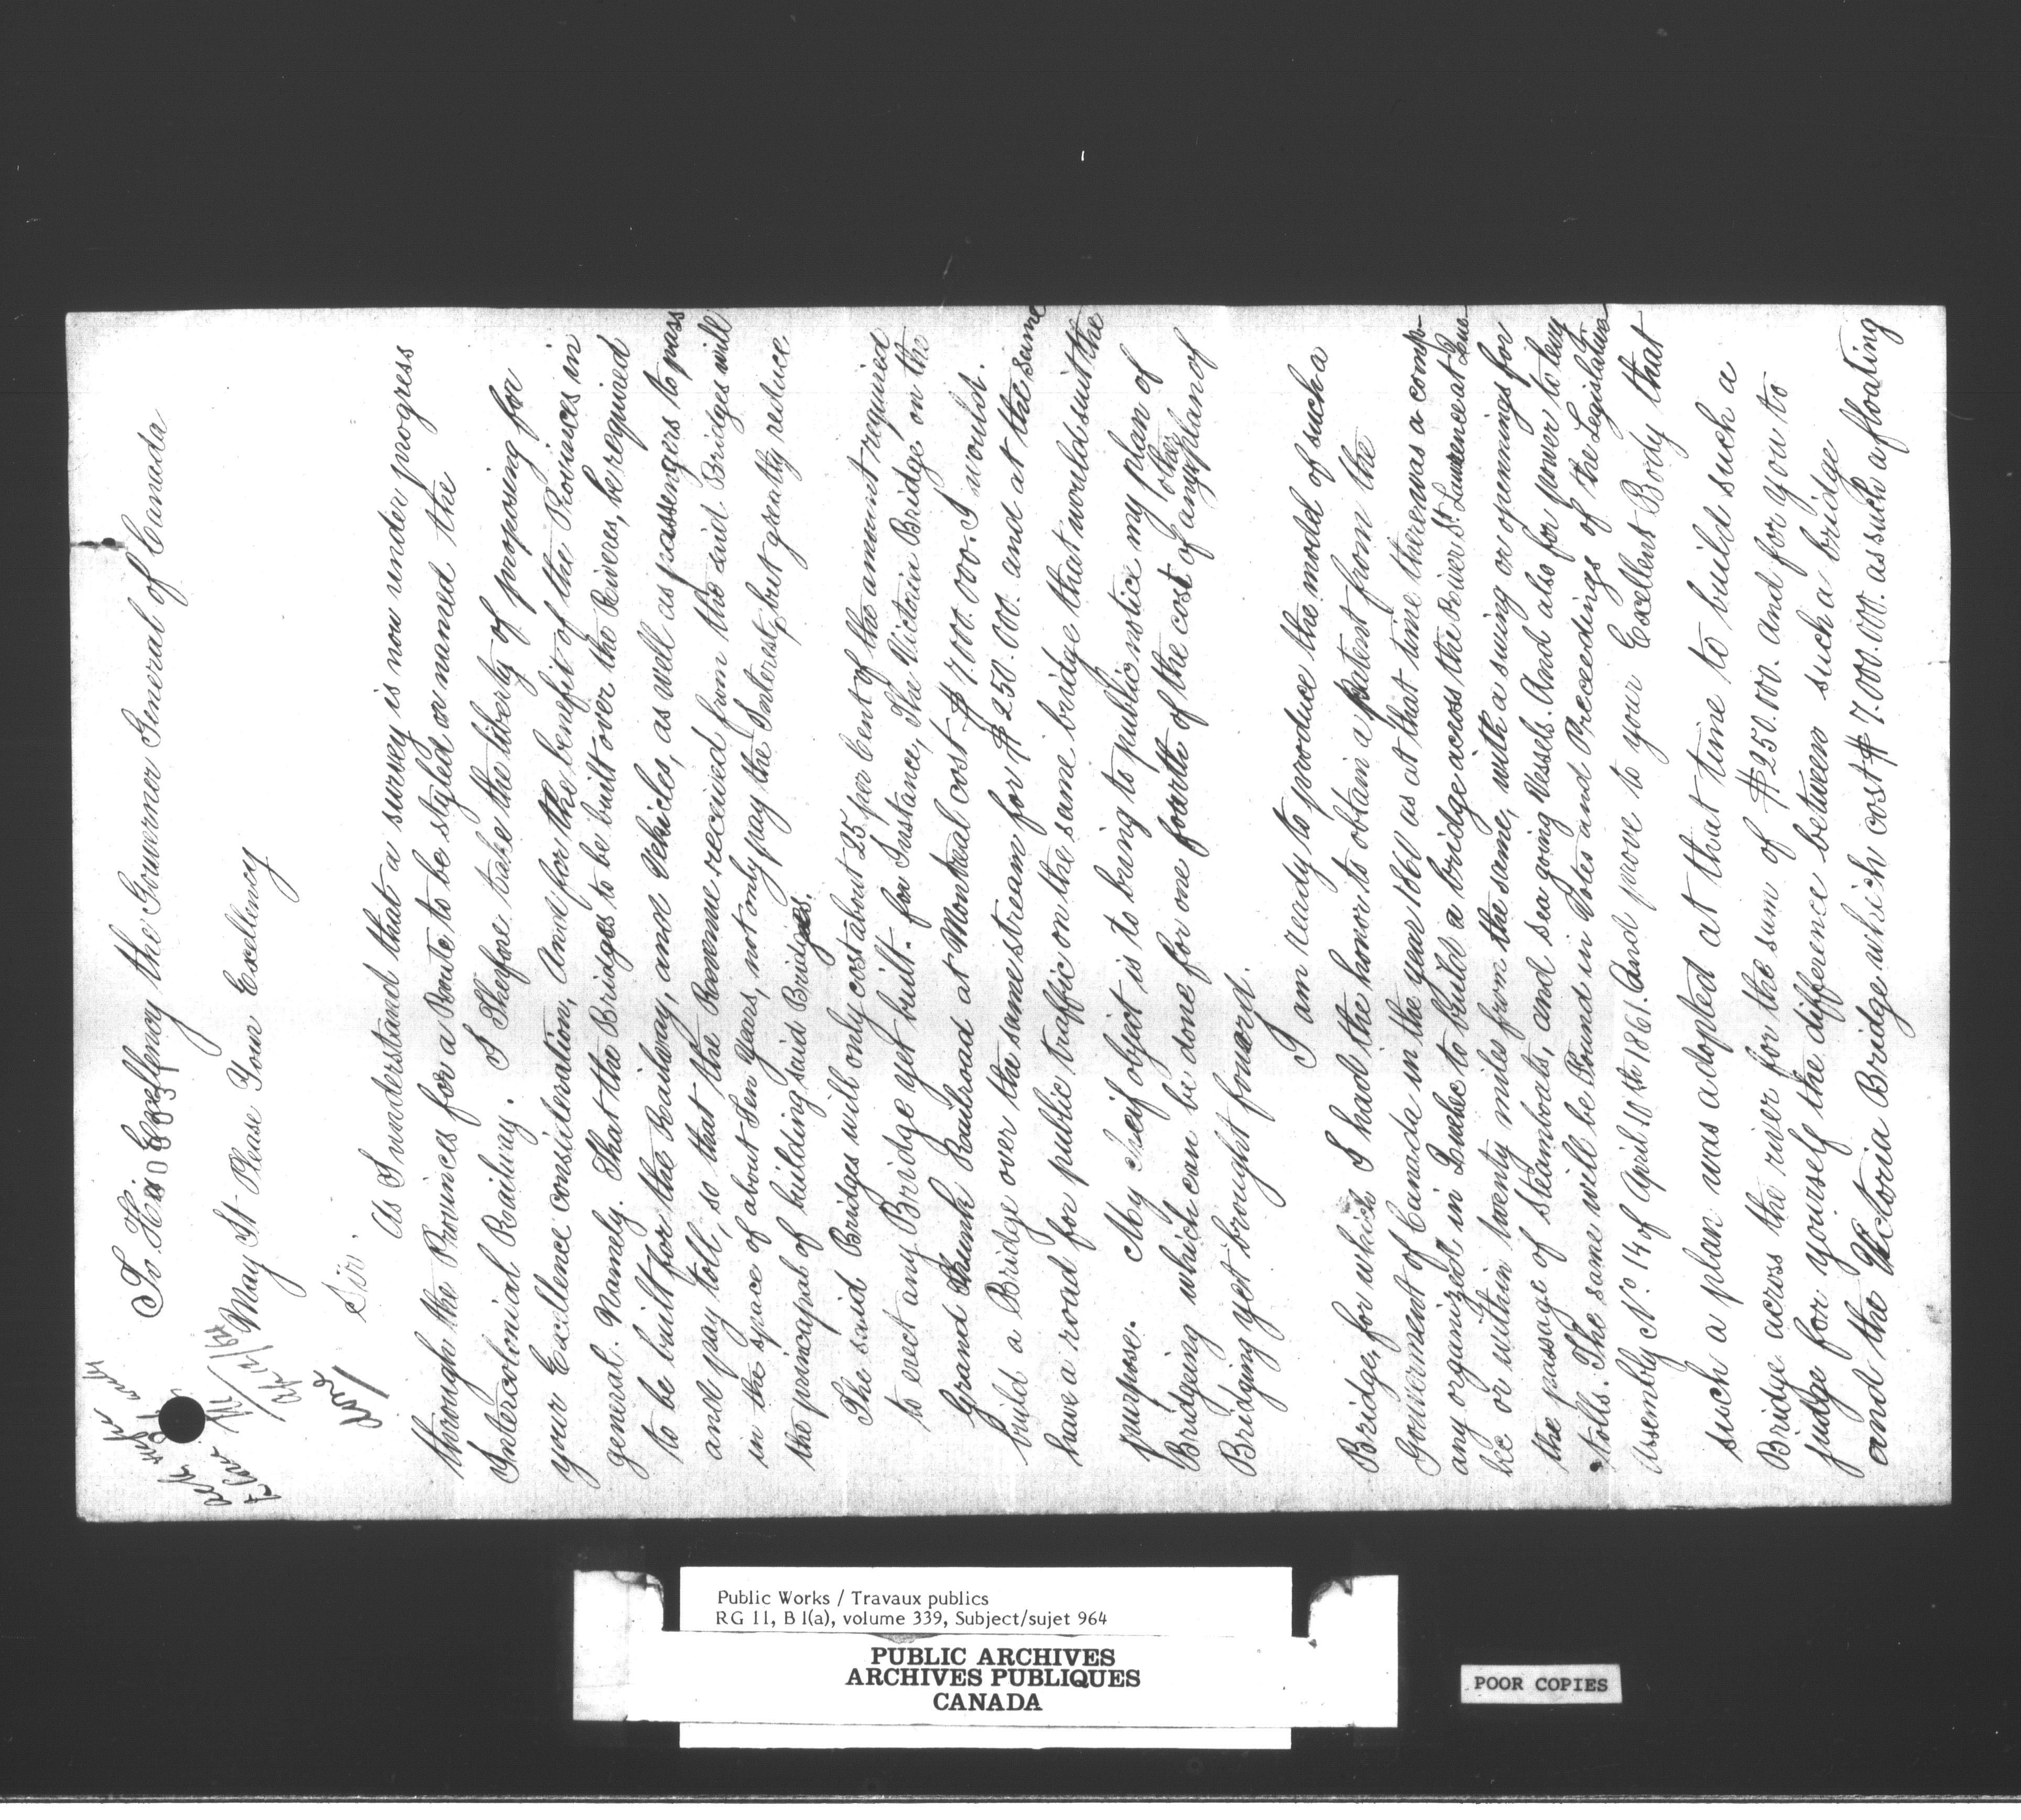 To His Excellency the Gouvernor General of Canada
May It Please Your Excellency
done
Sir.
As I understand that a survey is now under progress
through the Provinces for a Route to be styled or named the
Intercolonial Railway. I Therfore take the liberty of proposing for
your Excellence consideration, And for the benefit of the Provinces in
general. Namely. That the Bridges to be built over the Riveres, be required
to be built for the Railway, and Vehicles, as well as passengers to pass
and pay toll, so that the Revenue received from the said Bridges will
in the space of about Ten years, not only pay the Interest, but greatly reduce
the princapal of building said Bridges.
The said Bridges will only cost about 25 per Cent of the amount required
to erect any Bridge yet built. for Instance, The Victoria Bridge on the
Grand Trunk Railroad at Montreal cost $7.000.000. I would.
build a Bridge over the same stream for $250.000. and at the same
have a road for public traffic on the same bridge that would suit the
purpose. My Cheif object is to bring to public notice my plan of
Bridgeing which can be done for one fourth of the cost of any other plan of
Bridging yet brought fouard.
I am ready to produce the model of such a
Bridge, for which I had the honor to obtain a patent from the
Gouverment of Canada in the year 1860 as at that time there was a comp-
any organized in Quebec to build a bridge across the River St Lawrence at Que-
bec or within twenty miles from the same, with a swing or opennings for
the passage of Steamboats, and sea going Vessels. And also for power to levy
Tolls. The same will be Found in Votes and Preceedings of the Legislative
Assembly No 14 of April 10th 1861. And prove to your Excellent Body that
such a plan was adopted at that time to build such a
Bridge across the river for the sum of $250.000. and for you to
judge for yourself the difference between such a bridge
and the Victoria Bridge which cost $7.000.000. as such a floating
Public Works / Travaux publics
RG 11, B 1(a), volume 339, Subject/sujet 964
PUBLIC ARCHIVES
ARCHIVES PUBLIQUES
CANADA
POOR COPIES